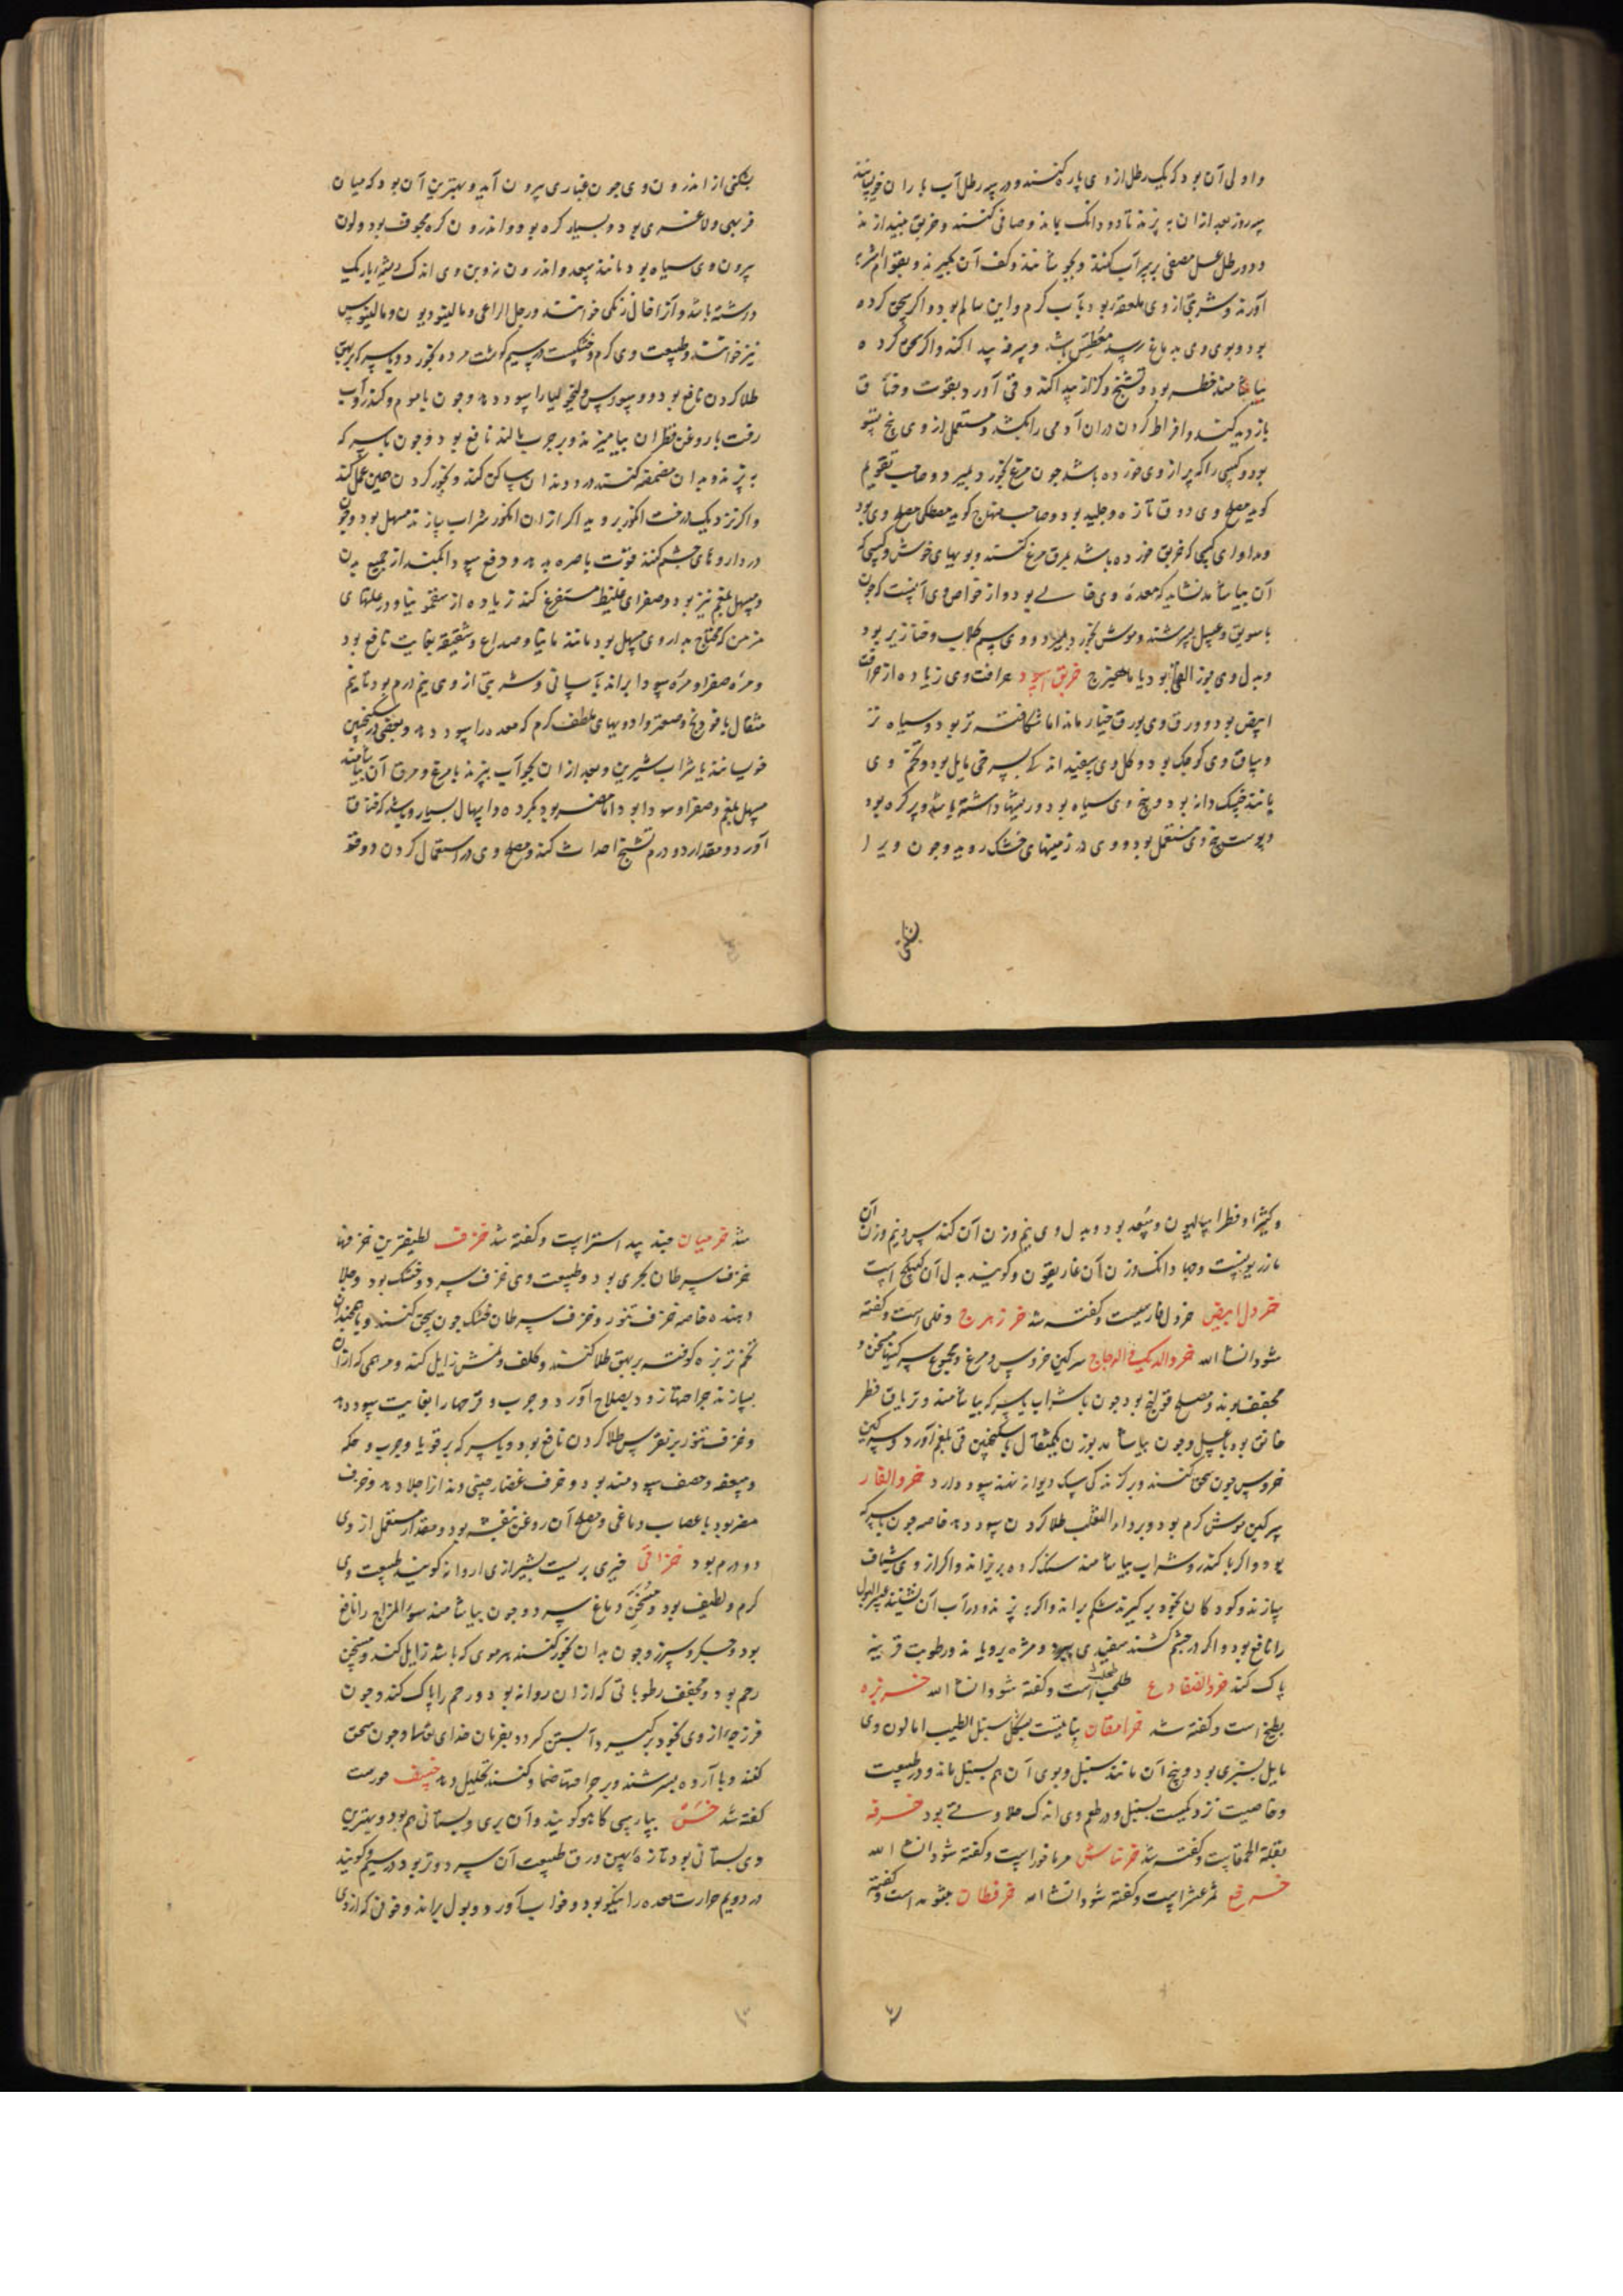 واولی آن بود که یک رطل از وی پاره کنند و در سه رطل آب باران خویسانند
سه روز بعد از ان به پزند تا دو دانک بماند و صافی کنند و خربق بیندازند
و دو رطل عسل مصفی بر سر آب کنند و بجوشانند و کف آن بگیرند و بقوام اشربه
آورند و شربتی از وی ملعقه بود بآب کرم و این سالم بود و اگر سحق کرده
بود و بوی وی به دماغ رسد معطس باشد و سرفه پیدا کند و اگر سحق کرده
بیاشامند خطر بود و تشنج و کزاز پیدا کند و قی آورد بقوت و خناق
بازدید کند و افراط کردن در ان آدمی را بکشد و مستعمل از وی پنج تسو
بود و کسی را که پر از وی خورده باشد چون مرغ بخورد بمیرد و صاحب تقویم
کوید مصلح وی ذوق تازه و جلید بود و صاحب منهاج کوید مصطکی مصلح وی بود
و مداوای کسی که خربق خورده باشد بمرق مرغ کنند و بویهای خوش و کسی که
آن بیاشامد نشاید که معده وی خالی بود و از خواص وی آنست که چون
با سویق و عسل بسرشند و موش بخورد بمیرد و وی سم کلاب و خنازیر بود
و بدل وی جوز القی بود یا ماهیزج خربق اسود حرافت وی زیاده از حرافت
ابیض بود و ورق وی بورق خیار ماند اما شکافته تر بود و سیاه تر
و ساق وی کوچک بود و کل وی سفید اند که بسرخی مایل بود و تخم وی
مانند خسک دانه بود و بیخ وی سیاه بود و ریشها داشته باشد و پر کره بود
و پوست بیخ وی مستعمل بود و وی در زمینهای خشک روید و چون ویرا
بشکنی
بشکنی از اندرون وی چون غباری بیرون آید و بهترین آن بود که میان
فربهی و لاغری بود و بسیار کره بود و اندرون کره مجوف بود و لون
بیرون وی سیاه بود مانند سعد و اندرون نه و بن وی اندک ریشهٔ باریک
درشته باشد و آنرا خال زنکی خوانند و رجل الراعی و مالینودیون و مالینوس
نیز خوانند و طبیعت وی کرم و خشکست در سیم کوشت مرده بخورد و با سرکه بر بهق
طلا کردن نافع بود و وسواس و مالیخولیا را سود دهد و چون با موم و کندر و آب
زفت با روغن قطران بیامیزند و بر جرب مالند نافع بود و چون با سرکه
به پزند و بدان مضمضه کنند درد دندان ساکن کند و بخور کردن همین عمل کند
و اگر نزدیک درخت انکور بروید اگر از ان انکور شراب سازند مسهل بود و چون
در داروهای چشم کنند قوت باصره بدهد و دفع سودا بکند از جمیع بدن
و مسهل بلغم نیز بود و صفرای غلیظ مستفرغ کند زیاده از سقمونیا و در علتهای
مزمن که محتاج بداروی مسهل بود مانند مانیا و صداع و شقیقه بغایت نافع بود
و مره صفرا و مره سودا براند بآسانی و شربتی از وی نیم درم بود تا نیم
مثقال با فودنج و صعتر و ادویهای ملطف کرم که معده را سود دهد و بعضی در سکنجبین
خویسانند یا شراب شیرین و بعد از ان بجو آب بپزند با مرغ و مرق آن بیاشامند
مسهل بلغم و صفرا و سودا بود اما مضر بود بکرده و اسهال بسیار و باشد که خناق
آورد و مقدار دو درم تشنج احداث کند و مصلح وی در استعمال کردن ذوقو
و کثیرا و فطراسالیون و سعد بود و بدل وی نیم وزن آن کندس و نیم وزن آن
مازریونست و چهار دانک وزن آن غاریقون و کویند بدل آن کبیکج است
خردل ابیض خردل فارسیست و کفته شد خرزهرج دفلی است و کفته
شود انشا الله خرو الدیک فی الدجاج سرکین خروس و مرغ و مجموع سرکینها مسخن و
مجفف بوند و مصلح قولنج بود چون با شراب یا سرکه بیاشامند و تریاق فطر
خانق بود با عسل و چون بیاشامد بوزن یکمثقال با سکنجبین قی بلغم آورد و سرکین
خروس چون سحق کنند و بر کزندکی سک دیوانه نهند سود دارد خرو الفار
سرکین موش کرم بود و بر داء الثعلب طلا کردن سود دهد خاصه چون با سرکه
بود و اگر با کندر و شراب بیاشامند سنک کرده بریزاند و اگر از وی شیاف
سازند و کودکان بخود برکیرند شکم براند و اگر بپزند و در آب آن نشینند عسر البول
را نافع بود و اگر در چشم کشند سفیدی ببرد و مژه برویاند و رطوبت قرنیه
پاک کند خرو الضفادع طحلب است و کفته شود انشا الله خربزه
بطیخ است و کفته شد خرامقان نباتیست بشکل سنبل الطیب اما لون وی
مایل بسبزی بود و بیخ آن مانند سنبل و بوی آن هم بسنبل ماند و در طبیعت
و خاصیت نزدیکست بسنبل و در طعم وی اندک حلاوتی بود خرفه
بقلة الحمقاست و کفته شد خرناس مرماخوز است و کفته شود انشا الله
خرفع ثمر عشر است و کفته شود انشا الله خرقطان است و کفته
شد خرمیان جند بیدستر است و کفته شد خزف لطیفترین خزفها
خزف سرطان بحری بود و طبیعت وی خزف سرد و خشک بود و جلا
دهنده خاصه خزف تنور و خزف سرطان خشک چون سحق کنند و با همچندان
تخم تربزه کوفته بر بهق طلا کنند و کلف و نمش زایل کند و مرهمی که از ان
بسازند جراحتها زود بصلاح آورد و جرب و قرحها را بغایت سود دهد
و خزف تنور بر نقرس طلا کردن نافع بود و با سرکه بر قوبا و جرب و حکه
و سعفه و حصف سودمند بود و خزف غضار صینی دندانرا جلا دهد و خزف
مضر بود باعصاب دماغی و مصلح آن روغن بنفشه بود و مقدار مستعمل از وی
دو درم بود خزامی خیری بریست بشیرازی اروانه کویند طبیعت وی
کرم و لطیف بود و مسخن دماغ سرد و چون بیاشامند سوء المزاج را نافع
بود و جکر و سپرز و چون بدان بخور کنند هر موی که باشد زایل کند و مسخن
رحم بود و مجفف رطوباتی که از ان روانه بود و رحم را پاک کند و چون
فرزجه از وی بخود برکیرد آبستن کردد بفرمان خدای تعالی و چون سحق
کنند و با آرد بسرشند و بر جراحتها ضماد کنند تحلیل دهد خسف جوزست
کفته شد خس بپارسی کاهو کویند و آن بری و بستانی هم بود و بهترین
وی بستانی بود تازه پهن ورق طبیعت آن سرد و تر بود در سیم و کویند
در دویم حرارت معده را نیکو بود و خواب آورد و بول براند و خونی که از وی